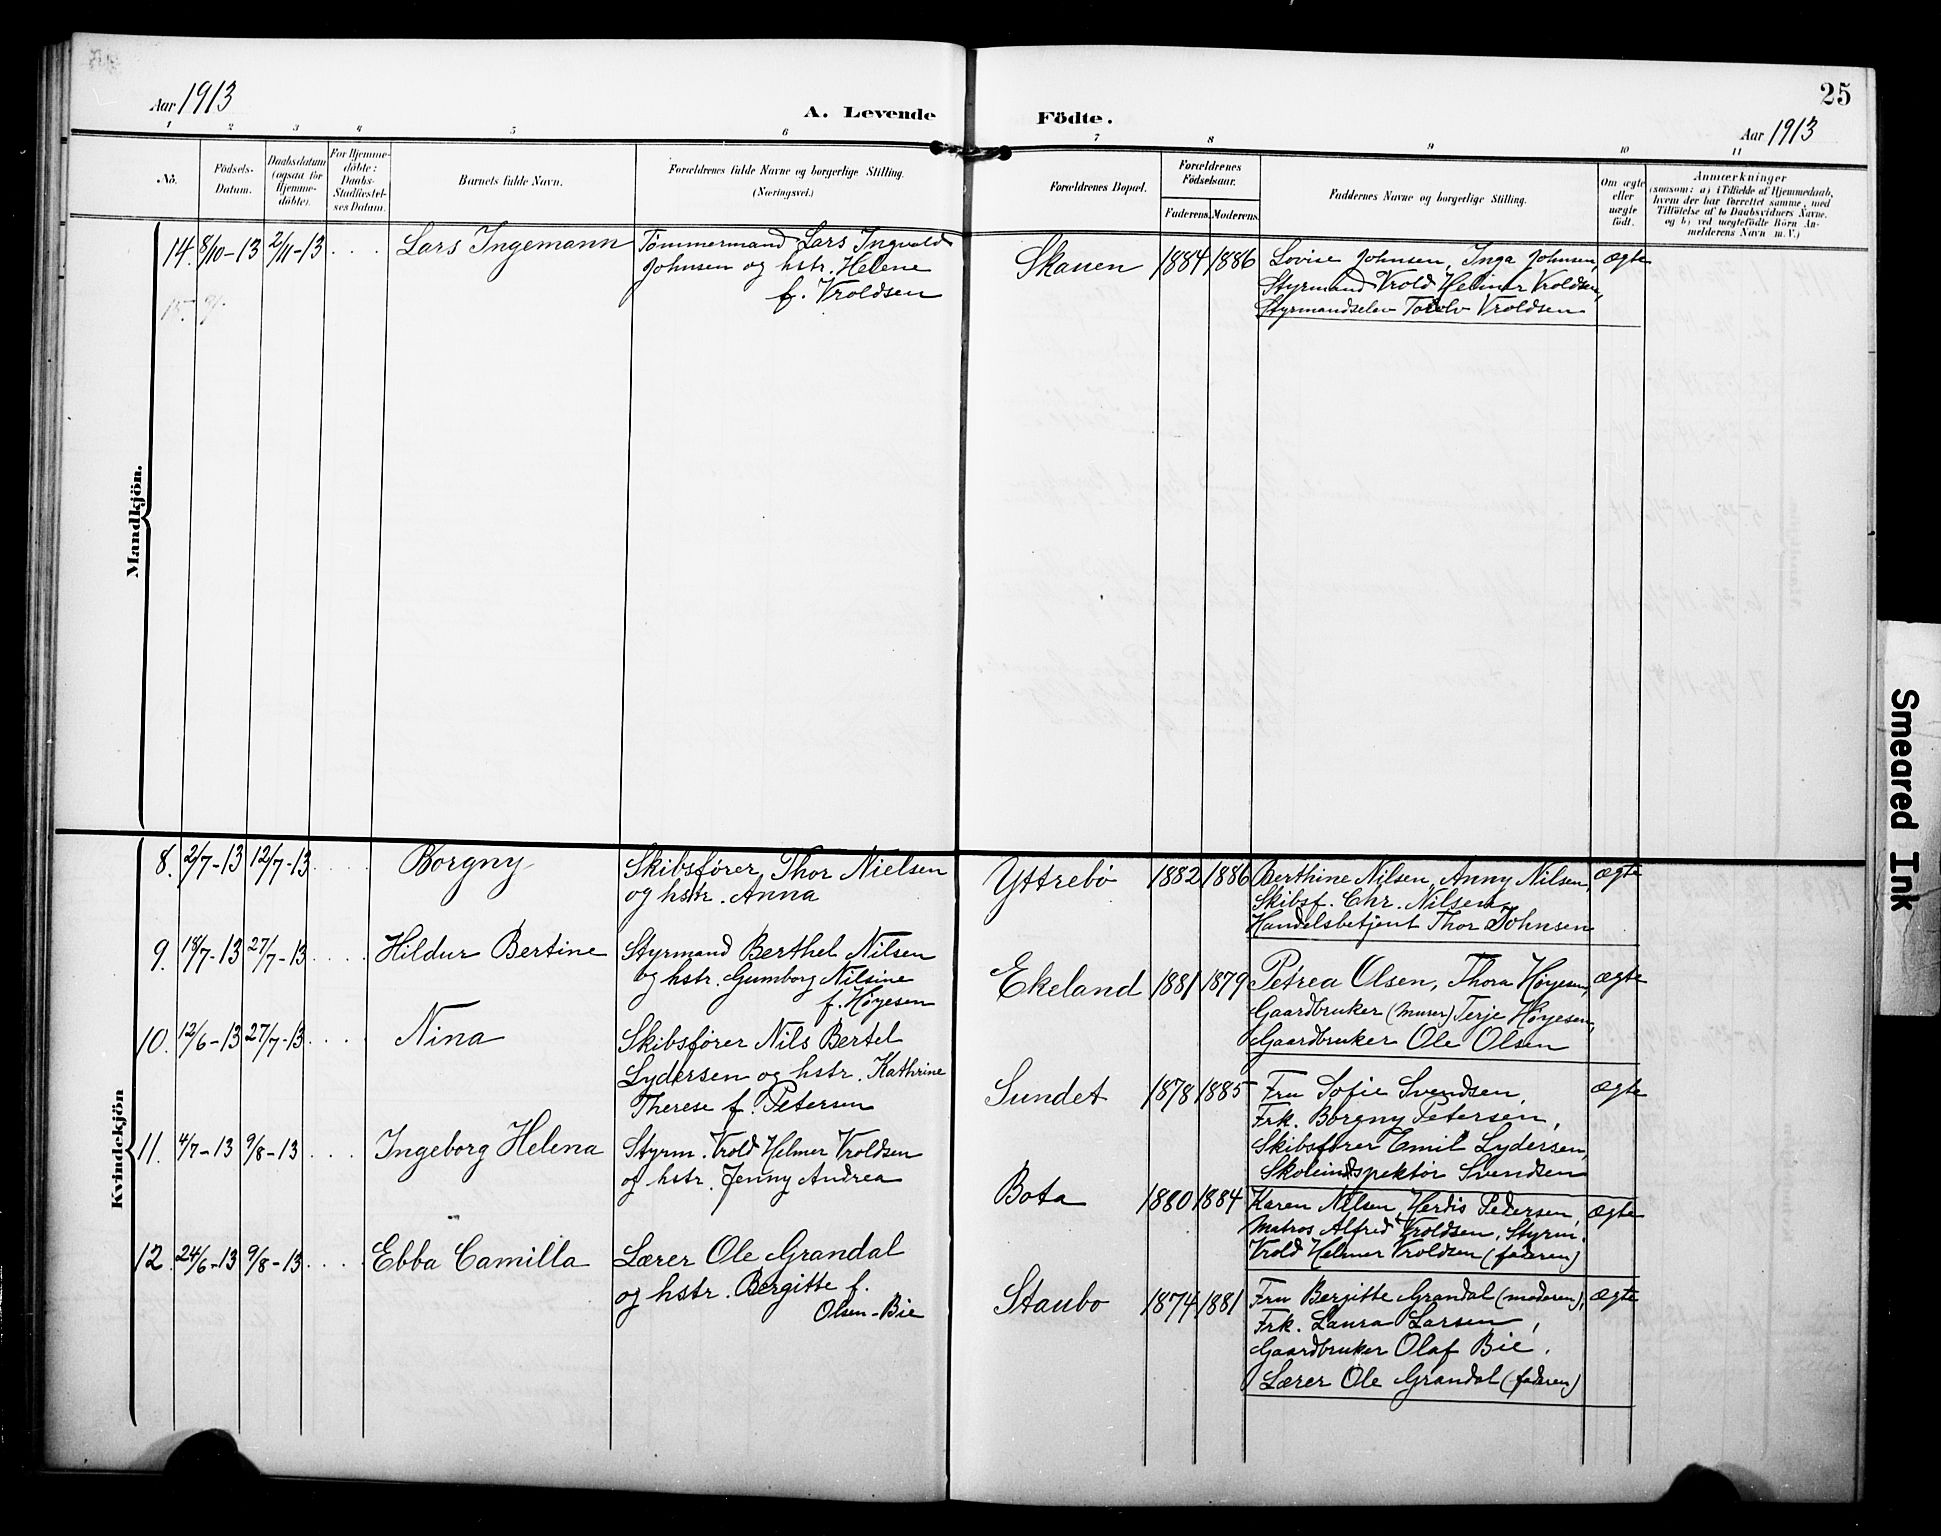 Aar 1913
A. Levende
Födte.
25
Aar 1913
1 2 3 4 5 6 7 8 9 10 11
No.
Födsels-
Datum.
Daabsdatum
(ogsaa for
Hjemme-
döbte).
For Hjemme-
döbte:
Daabs-
Stadfæstel-
ses Datum.
Barnets fulde Navn.
Forældrenes fulde Navne og borgerlige Stilling.
(Næringsvei.)
Forældrenes Bopæl.
Forældrenes
Födselsaar.
Faderens. Moderens.
Faddernes Navne og borgerlige Stilling.
Om ægte
eller
uægte
födt.
Anmærkninger
(saasom: a) i Tilfælde af Hjemmedaab,
hvem der har forrettet samme, med
Tilföielse af to Daabsvidners Navne.
og b) ved uægtefödte Börn An-
melderens Navn m. V.)
Mandkjön.
14. 8/10-13 2/11-13 Lars Ingemann
Tømmermand Lars Ingvald
Johnsen og hstr. Helene
f. Vroldsen
Skauen 1884 1886
Lovise Johnsen, Inga Johnsen,
Styrmand Vrold Helmer Vroldsen,
Styrmandselev Torolv Vroldsen
ægte
15.
Kvindekjön
8. 2/7-13 12/7-13 Borgny
Skibsfører Thor Nielsen
og hstr. Anna
Yttrebö 1882 1886
Berthine Nilsen, Anny Nilsen,
Skibsf. Chr. Nilsen
Handelsbetjent Thor Johnsen
ægte
9. 18/7-13 27/7-13 Hildur Bertine
Styrmand Berthel Nilsen
og hstr. Gumborg Nilsine
f. Høyesen
Ekeland 1881 1879
Petrea Olsen, Thora Høyesen,
Gaardbruker (murer) Terje Høyesen,
Gaardbruker Ole Olsen
ægte
10. 12/6-13 27/7-13 Nina
Skibsfører Nils Bertel
Lydersen og hstr. Kathrine
Therese f. Petersen
Sundet 1878 1885
Fru Sofie Svendsen,
Frk. Borgny Petersen,
Skibsfører Emil Lydersen,
Skoleindspektør Svendsen
ægte
11. 4/7-13 9/8-13 Ingeborg Helena
Styrm. Vrold Helmer Vroldsen
og hstr. Jenny Andrea
Bota 1880 1884
Karen Nilsen, Herdis Pedersen,
Matros Alfred Vroldsen, Styrm.
Vrold Helmer Vroldsen (faderen)
ægte
12. 24/6-13 9/8-13 Ebba Camilla
Lærer Ole Grandal
og hstr. Bergitte f.
Olsen-Bie
Staubo 1874 1881
Fru Bergitte Grandal (moderen),
Frk. Laura Larsen,
Gaardbruker Olaf Bie,
Lærer Ole Grandal (faderen)
ægte
Smeared Ink